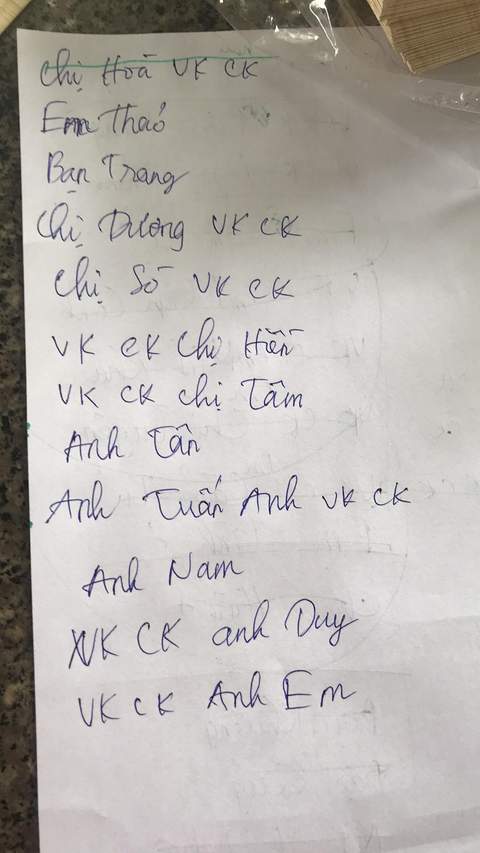 Chị Hoà VK CK
Em Thảo
Bạn Trang
Chị Dương VK CK
Chị Số VK CK
VK CK Chị Hiền
VK CK chị Tâm
Anh Tân
Anh Tuấn Anh VK CK
Anh Nam
VK CK anh Duy
VK CK Anh Em